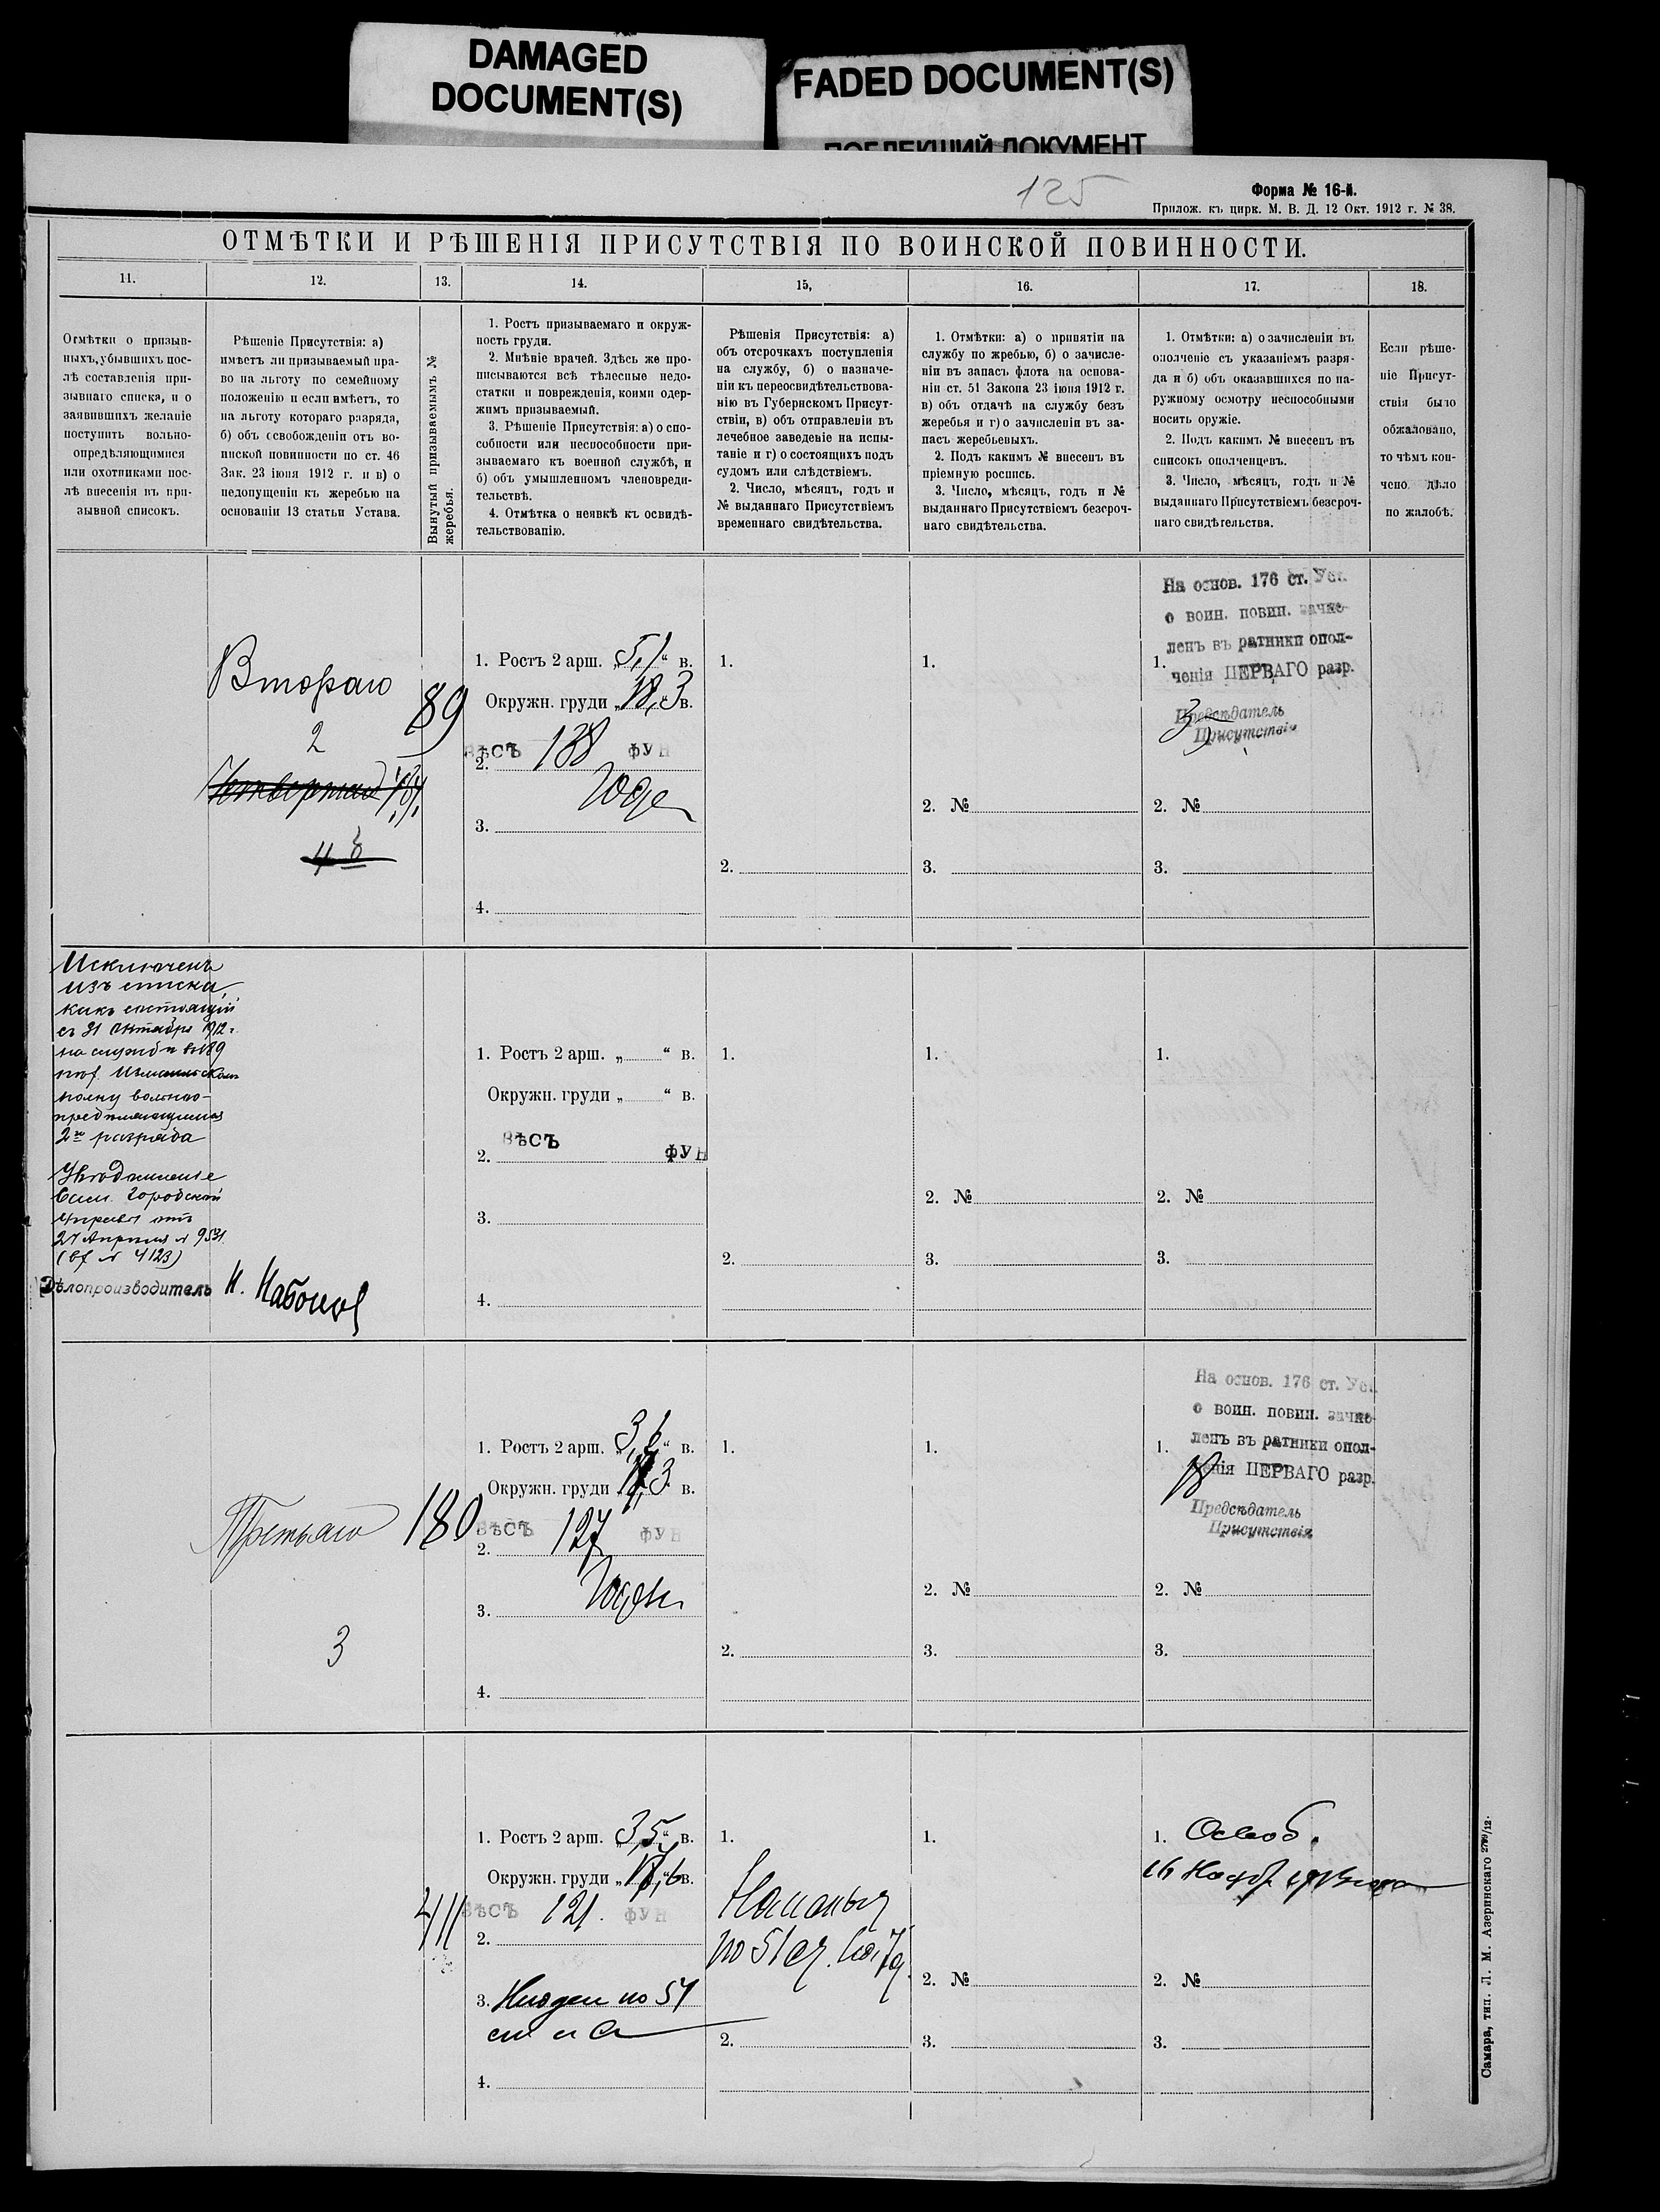 DAMAGED
DOCUMENT(S)
FADED DOCUMENT(S)
ПОБЛЕКШИЙ ДОКУМЕНТ
125
Форма № 16-й.
Прилож. къ цирк. М. В. Д. 12 Окт. 1912 г. № 38.
ОТМѢТКИ И РѢШЕНІЯ ПРИСУТСТВІЯ ПО ВОИНСКОЙ ПОВИННОСТИ.
11.
12.
13.
14.
15,
16.
17.
18.
Отмѣтки о призыв-
ныхъ, убывшихъ пос-
лѣ составленія при-
зывнаго списка, и о
заявившихъ желаніе
поступить вольно-
опредѣляющимися
или охотниками пос-
лѣ внесенія въ при-
зывной списокъ.
Рѣшеніе Присутствія: а)
имѣетъ ли призываемый пра-
во на льготу по семейному
положенію и если имѣетъ, то
на льготу котораго разряда,
б) объ освобожденіи отъ во-
инской повинности по ст. 46
Зак. 23 іюня 1912 г. и в) о
недопущеніи къ жеребью на
основаніи 13 статьи Устава.
Вынутый призываемымъ №
жеребья.
1. Ростъ призываемаго и окруж-
ность груди.
2. Мнѣніе врачей. Здѣсь же про-
писываются всѣ тѣлесные недо-
статки и поврежденія, коими одер-
жимъ призываемый.
3. Рѣшеніе Присутствія: а) о спо-
собности или неспособности при-
зываемаго къ военной службѣ, и
б) объ умышленномъ членовреди-
тельствѣ.
4. Отмѣтка о неявкѣ къ освидѣ-
тельствованію.
Рѣшенія Присутствія: а)
объ отсрочкахъ поступленія
на службу, б) о назначе-
ніи къ переосвидѣтельствова-
нію въ Губернскомъ Присут-
ствіи, в) объ отправленіи въ
лечебное заведеніе на испы-
таніе и г) о состоящихъ подъ
судомъ или слѣдствіемъ.
2. Число, мѣсяцъ, годъ и
№ выданнаго Присутствіемъ
временнаго свидѣтельства.
1. Отмѣтки: а) о принятіи на
службу по жребью, б) о зачисле-
ніи въ запасъ флота на основа-
ніи ст. 51 Закона 23 іюня 1912 г.
в) объ отдачѣ на службу безъ
жеребья и г) о зачисленіи въ за-
пасъ жеребьевыхъ.
2. Подъ какимъ № внесенъ въ
пріемную роспись.
3. Число, мѣсяцъ, годъ и №
выданнаго Присутствіемъ безсроч-
наго свидѣтельства.
1. Отмѣтки: а) о зачисленіи въ
ополченіе съ указаніемъ разря-
да и б) объ оказавшихся по на-
ружному осмотру неспособными
носить оружіе.
2. Подъ какимъ № внесенъ въ
списокъ ополченцевъ.
3. Число, мѣсяцъ, годъ и №
выданнаго Присутствіемъ безсроч-
наго свидѣтельства.
Если рѣше-
ніе Присут-
ствія было
обжаловано,
то чѣмъ кон-
чено дѣло
по жалобѣ.
Второго
2
89
1. Ростъ 2 арш. „5,1“ в.
Окружн. груди „18,3 в.
ВѢСЪ 138 ФУН
2.
Годе
3.
4.
1.
2.
1.
2. №
3.
На основ. 176 ст. Уст.
о воин. повин. зачис-
ленъ въ ратники опол-
1. ченія ПЕРВАГО разр.
Предсѣдатель
Присутствія
2. №
3.
Исключенъ
изъ списка,
какъ состоящій
съ 31 Октября 1912 г.
на службѣ въ 189
пѣх. Измаильскомъ
полку вольно-
опредѣляющимся
2го разряда
Увѣдомленіе
Сам. Городской
Управы отъ
24 Апрѣля № 9531
(вх № 4123)
Дѣлопроизводитель Н.
1. Ростъ 2 арш. „ “ в.
Окружн. груди „ “ в.
ВѢСЪ ФУН
2.
3.
4.
1.
2.
1.
2. №
3.
1.
2. №
3.
Третьяго
3
180
1. Ростъ 2 арш. „3,6“ в.
Окружн. груди „17,3“ в.
ВѢСЪ 127 ФУН
2.
Годен
3.
4.
1.
2.
1.
2. №
3.
На основ. 176 ст. Уст.
о воин. повин. зачис-
1. ленъ въ ратники опол-
ченія ПЕРВАГО разр.
Предсѣдатель
Присутствія
2. №
3.
411
1. Ростъ 2 арш. „3,5“ в.
Окружн. груди „17,6 в.
ВѢСЪ 121. ФУН
2.
3. Негоден по 57
ст
4.
1.
по 51 ст.
2.
1.
2. №
3.
1. Освоб.
16 Нояб. 1913 года
2. №
3.
Самара, тип. Л. М. Азеринскаго